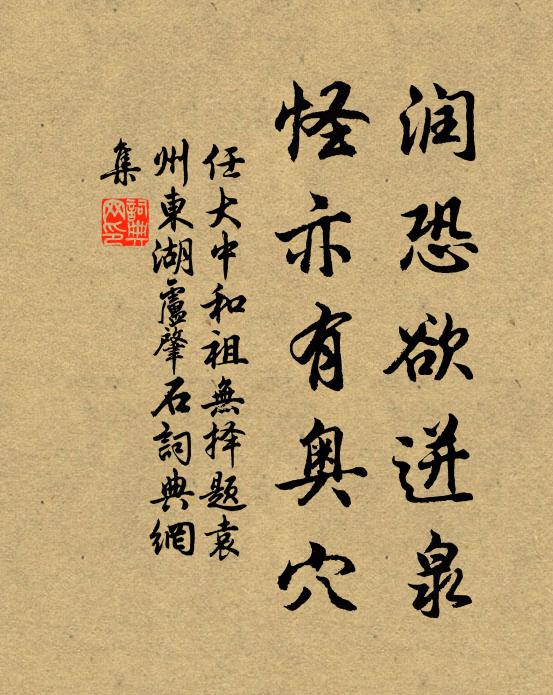 润恐欲迸泉
怪亦有奥穴
任大中和祖無择题袁
州東湖盧肇石詞典網
集
詞典網印